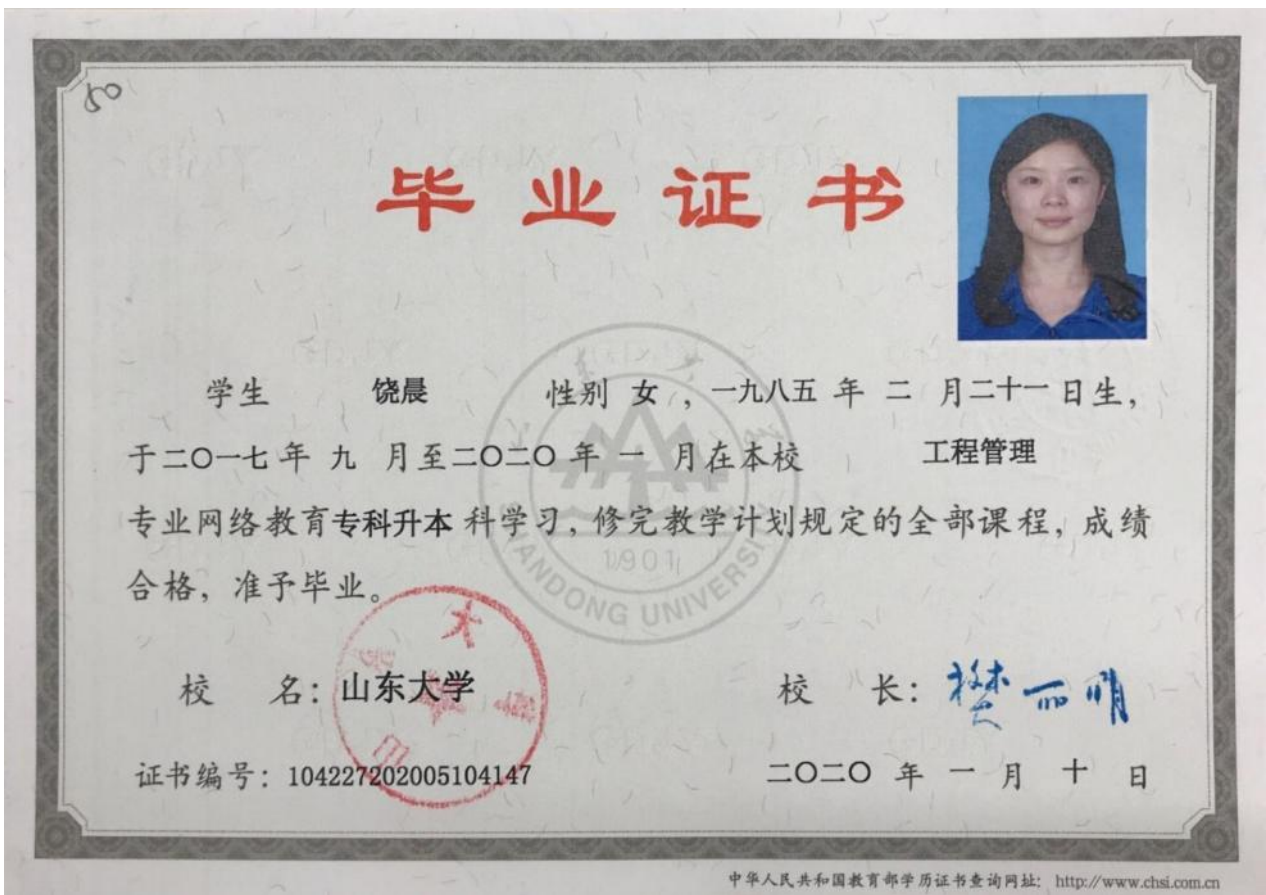 50
毕业证书
学生 饶晨 性别 女，一九八五 年 二 月二十一 日生，
于二〇一七 年 九 月至二〇二〇 年 一 月在本校 工程管理
专业网络教育专科升本 科学习，修完教学计划规定的全部课程，成绩
合格，准予毕业。
SHANDONG UNIVERSITY
1901
校 名：山东大学
校 长：樊丽明
证书编号：104227202005104147
二〇二〇 年 一 月 十 日
中华人民共和国教育部学历证书查询网址：http://www.chsi.com.cn